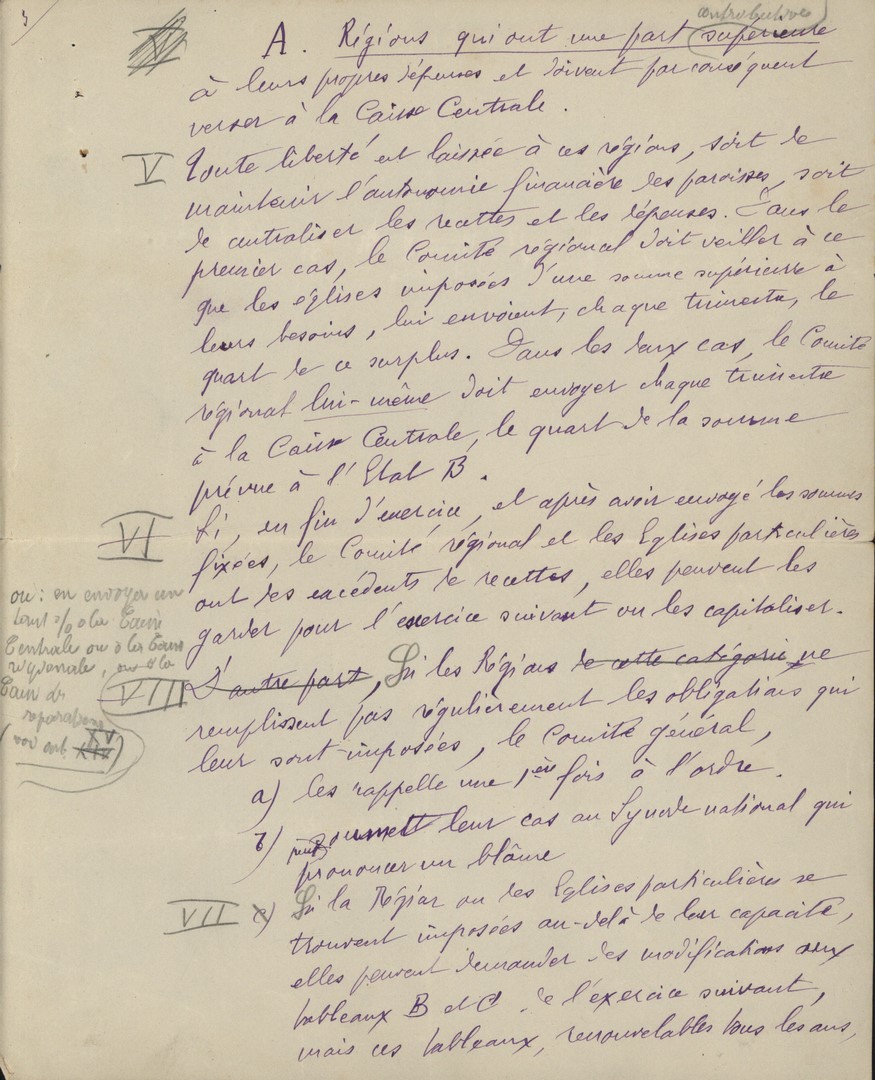 3
contributives
A. Régions qui ont une part supérieure
à leurs propres dépenses et doivent par conséquent
verser à la Caisse Centrale.
V Toute liberté est laissée à ces régions, soit de
maintenir l'autonomie financière des paroisses, soit
de centraliser les recettes et les dépenses. Dans le
premier cas, le Comité régional doit veiller à ce
que les églises imposées d'une somme supérieure à
leurs besoins, lui envoient, chaque trimestre, le
quart de ce surplus. Dans les deux cas, le Comité
régional lui-même doit envoyer chaque trimestre
à la Caisse Centrale, le quart de la somme
prévue à l'Etat B.
VI Si, en fin d'exercice, et après avoir envoyé les sommes
fixées, le Comité régional et les Eglises particulières
ont des excédents de recettes, elles peuvent les
garder pour l'exercice suivant ou les capitaliser.
ou : en envoyer un
tant % à la Caisse
Centrale ou à la Caisse
régionale, ou à la
Caisse de
réparations
(voir art. XIV XV)
VIII D'autre part, Si les Régions de cette catégorie ne
remplissent pas régulièrement les obligations qui
leur sont imposées, le Comité général,
a) les rappelle une 1ère fois à l'ordre.
b) peut soumett leur cas au Synode national qui
prononcer un blâme
VII c) Si la Région ou des Eglises particulières se
trouvent imposées au-delà de leur capacité,
elles peuvent demander des modifications aux
tableaux B et C de l'exercice suivant,
mais ces tableaux, renouvelables tous les ans,